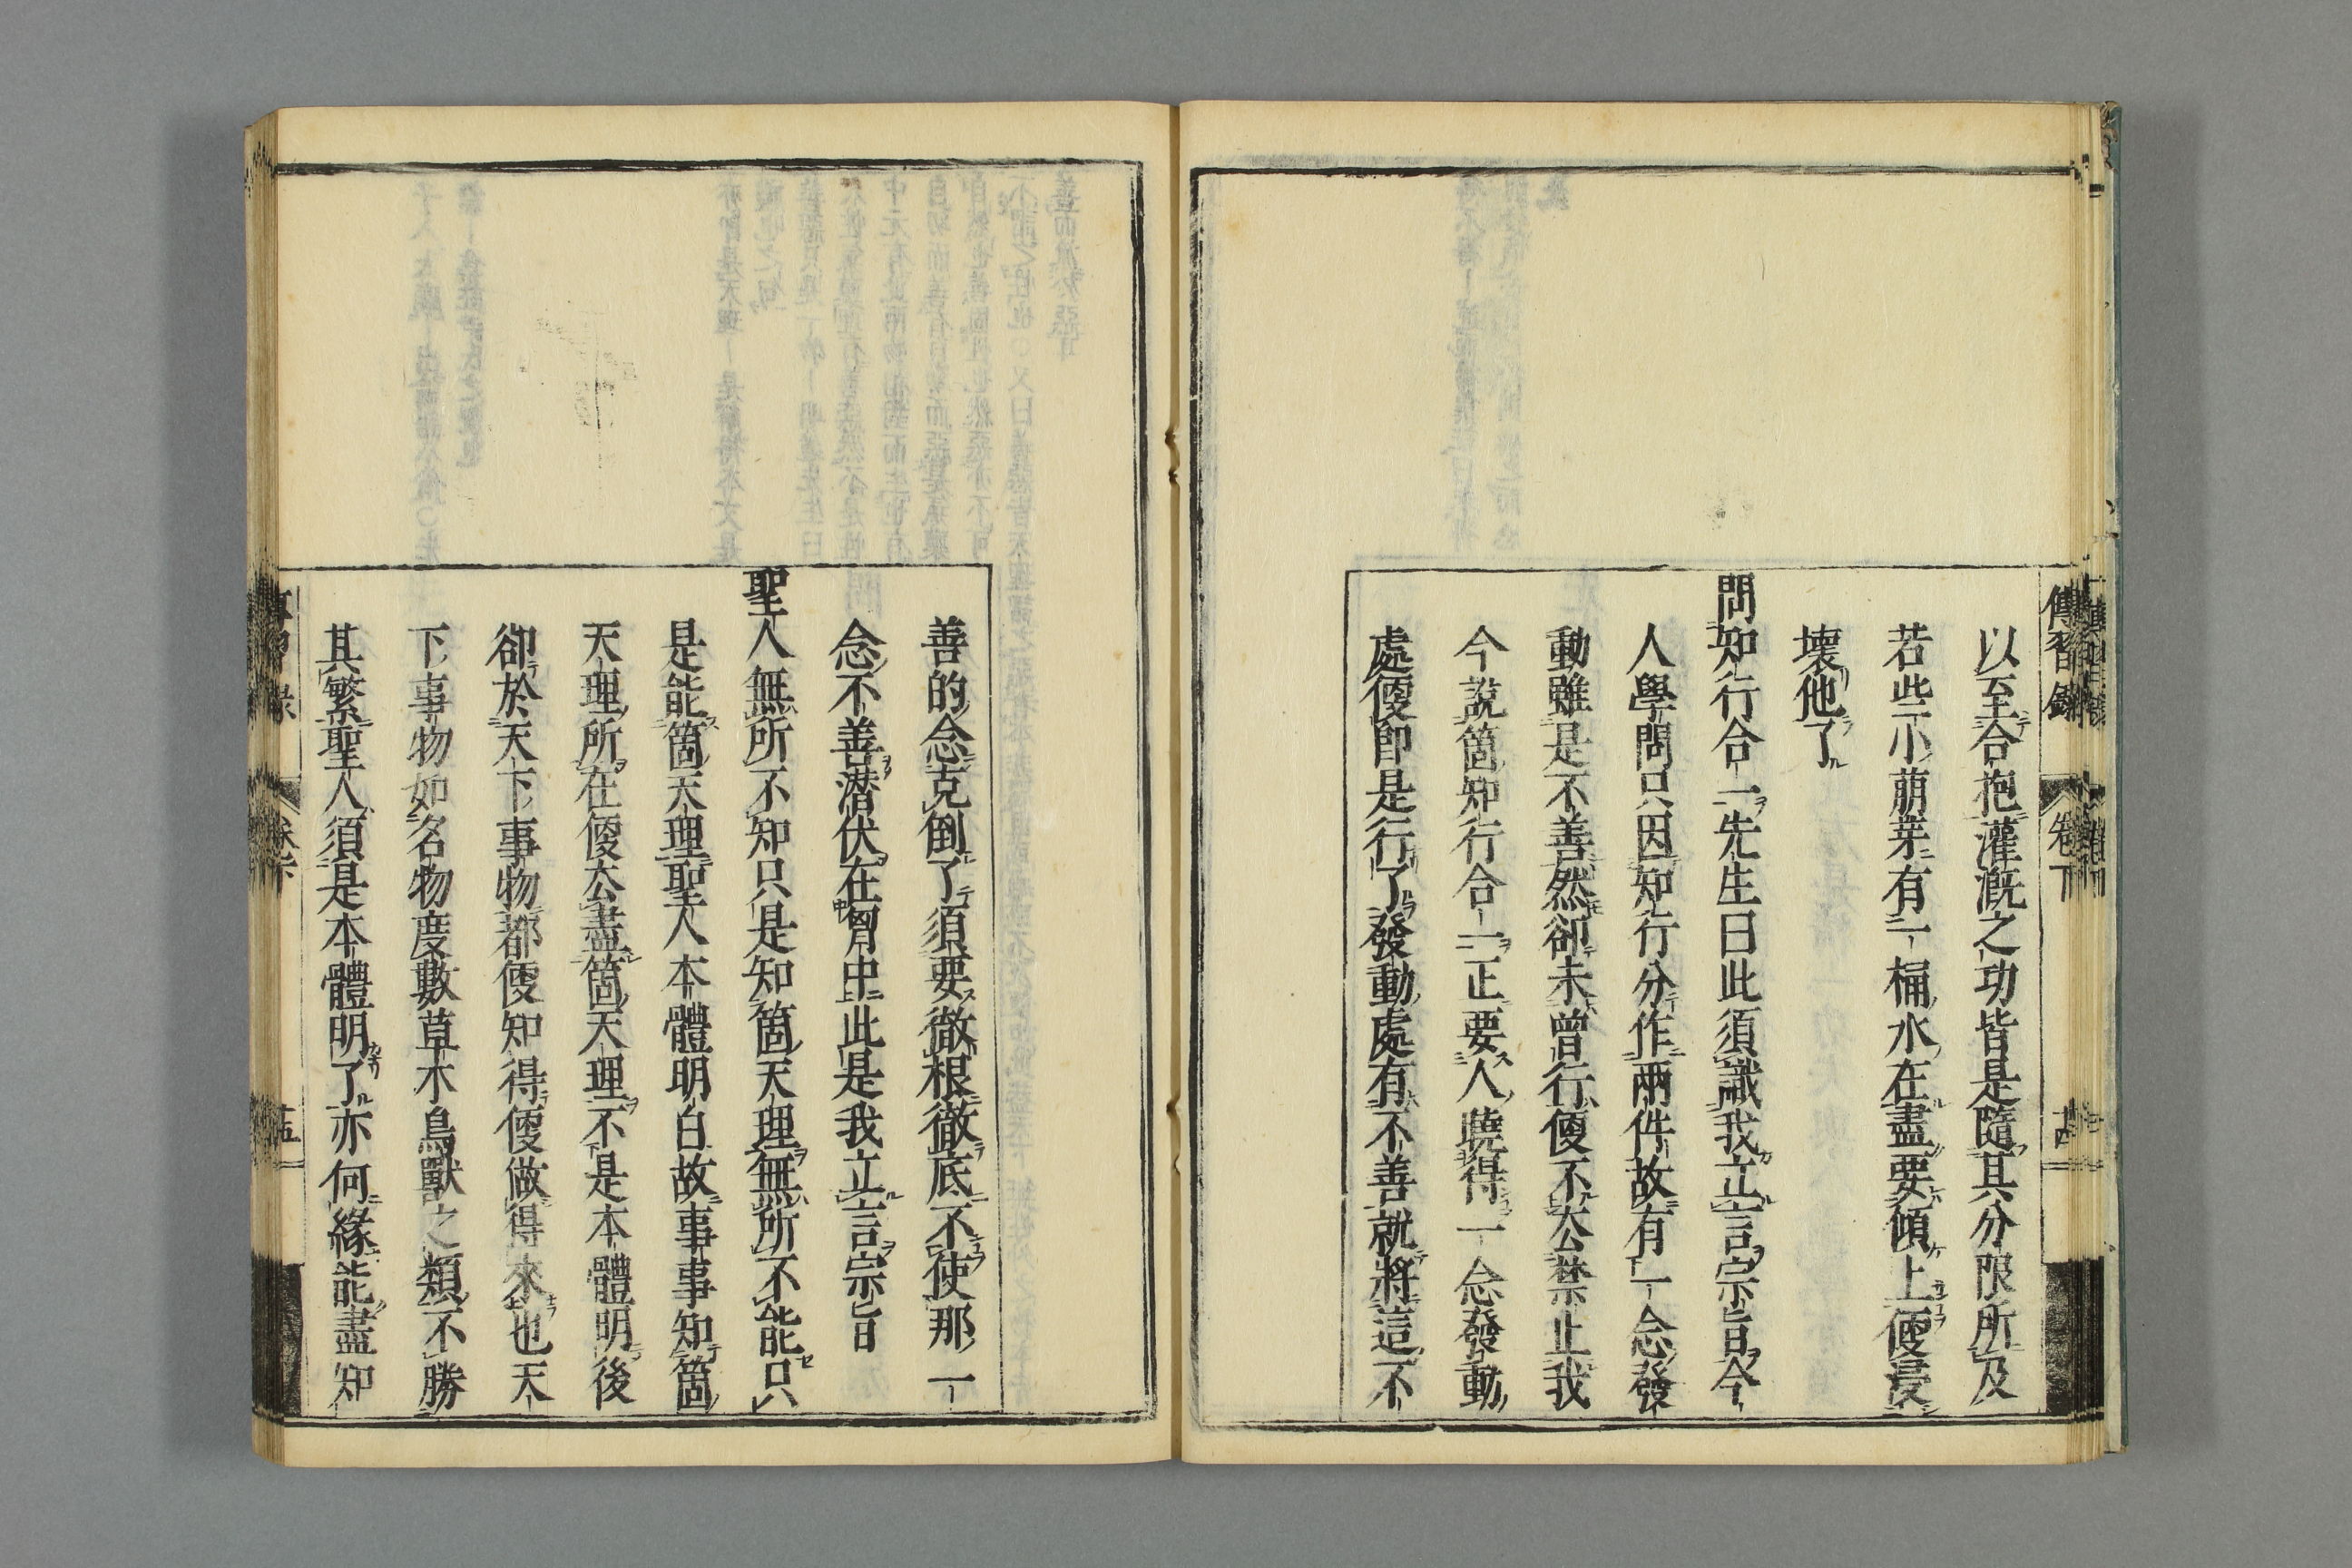 傳習錄
卷下
十四
以至合抱灌漑之功皆是隨其分限所及
若些小萠芽有一桶水在盡要傾上便浸
壞他了
問知行合一先生曰此須識我立言宗旨今
人學問只因知行分作兩件故有一念發
動雖是不善然卻未曾行便不去禁止我
今說箇知行合一正要人曉得一念發動
處便即是行了發動處有不善就將這不
善的念克倒了須要徹根徹底不使那一
念不善潜伏在胷中此是我立言宗旨
聖人無所不知只是知箇天理無所不能只
是能箇天理聖人本體明白故事事知箇
天理所在便去盡箇天理不是本體明後
卻於天下事物都便知得便做得來也天
下事物如名物度數草木鳥獸之類不勝
其繁聖人須是本體明了亦何緣能盡知